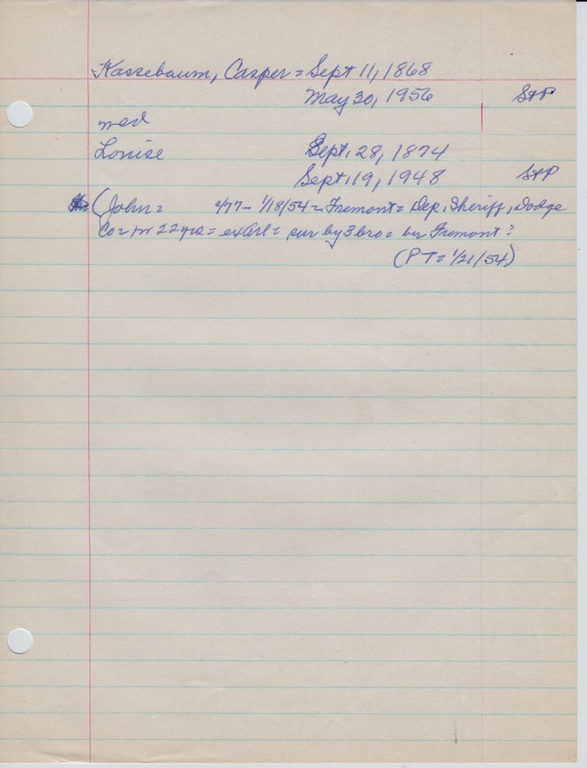 Kassebaum, Casper = Sept 11, 1868
May 30, 1956 StP
med
Louise Sept. 28, 1874
Sept. 19, 1948 StP
(John = 9/77 - 1/18/54 = Fremont = Dep. Sheriff, Dodge
Co = 22 yrs = ex Arl = sur by 3 bro = bur Fremont ?
(PT = 1/21/54)